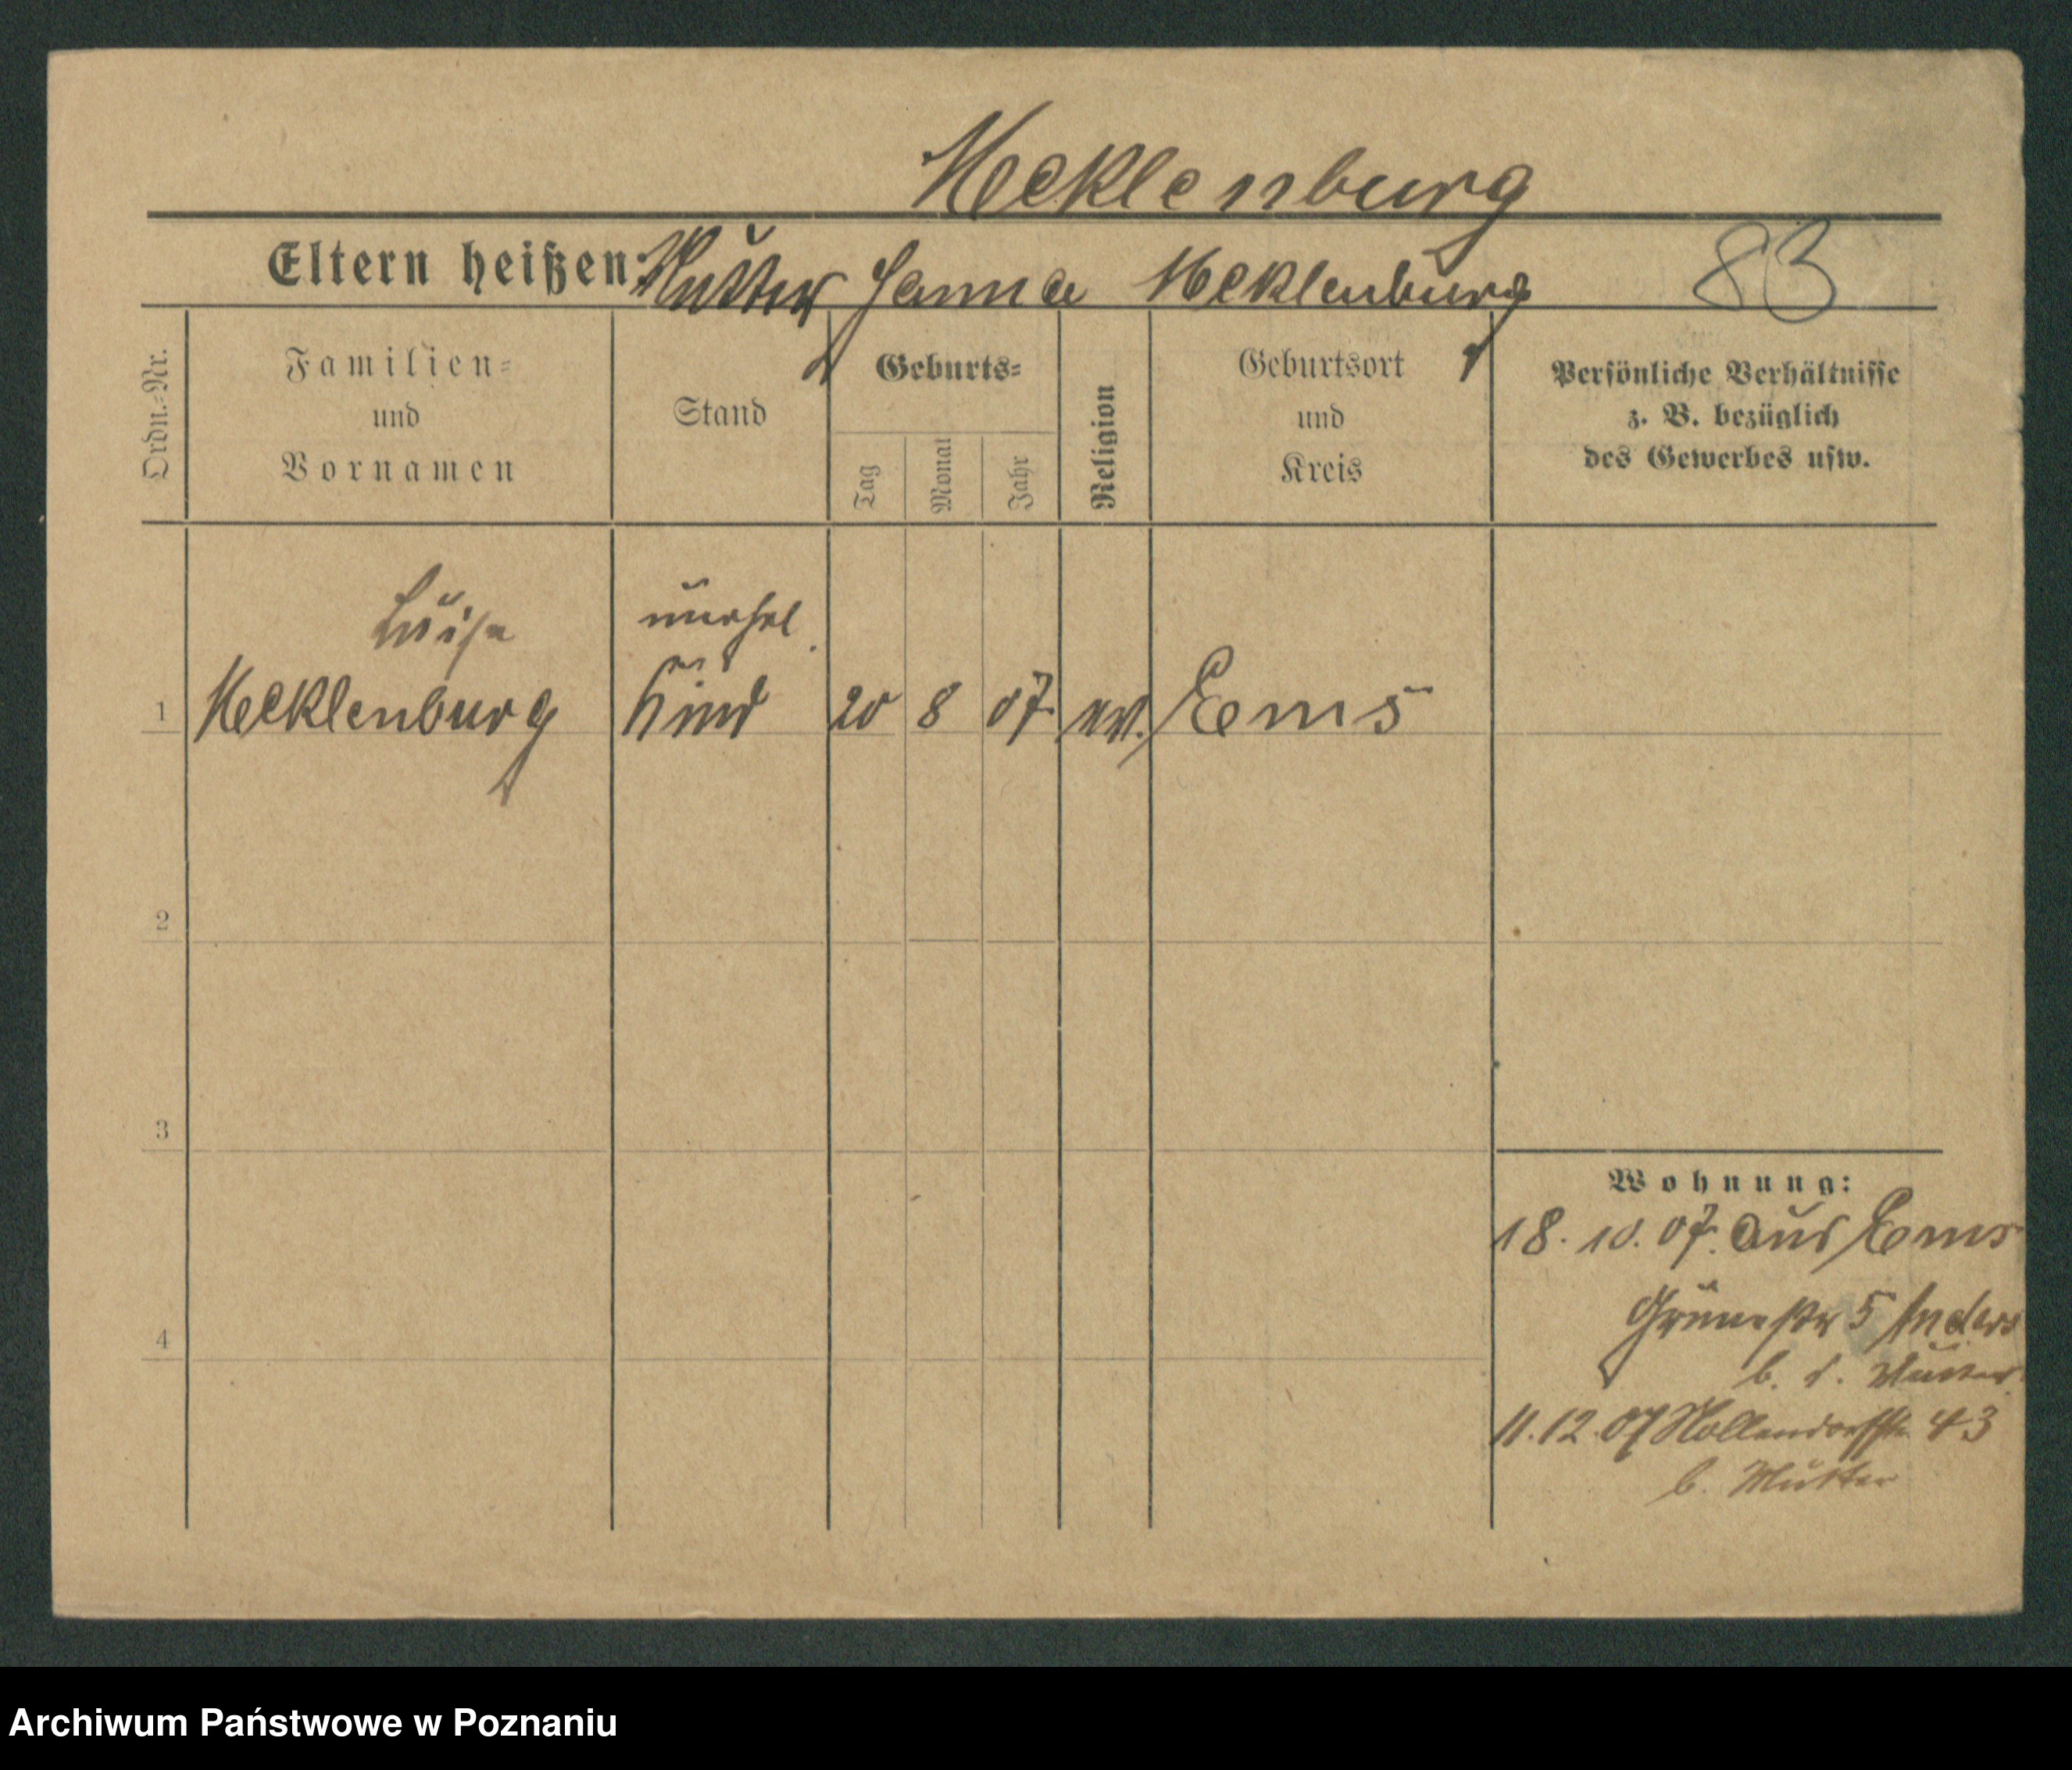 Mecklenburg
Eltern heißen: Mutter Hanna Mecklenburg 83
Ordn.-Nr.
Familien-
und
Vornamen
Stand
Geburts-
Tag
Monat
Jahr
Religion
Geburtsort
und
Kreis
Persönliche Verhältnisse
z. B. bezüglich
des Gewerbes usw.
Luise unehel.
1 Mecklenburg Kind 20 8 07 ev. Ems
2
3
4
Wohnung:
18. 10. 07. aus Ems
Grünestr 5 Anders
b. d. Mutter
11.12.07 Nollendorfstr. 43
b. Mutter
Archiwum Państwowe w Poznaniu